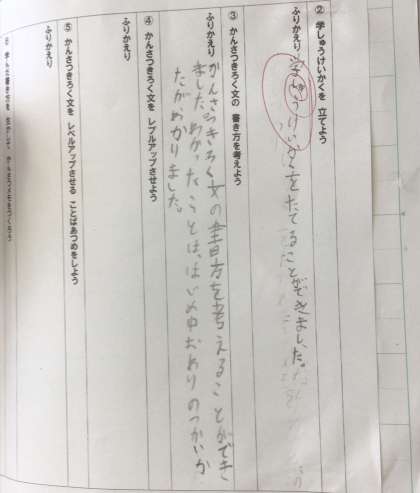 ② 学しゅうけいかくを 立てよう
ふりかえり 学しゅうけいかくをたてることができました。
③ かんさつきろく文の 書き方を考えよう
ふりかえり かんさつきろく文の書き方を考えることができ
ました。わかったことは、はじめ中おわりのつかいか
たがわかりました。
④ かんさつきろく文を レブルアップさせよう
ふりかえり
⑤ かんさつきろく文を レベルアップさせる ことばあつめをしよう
ふりかえり